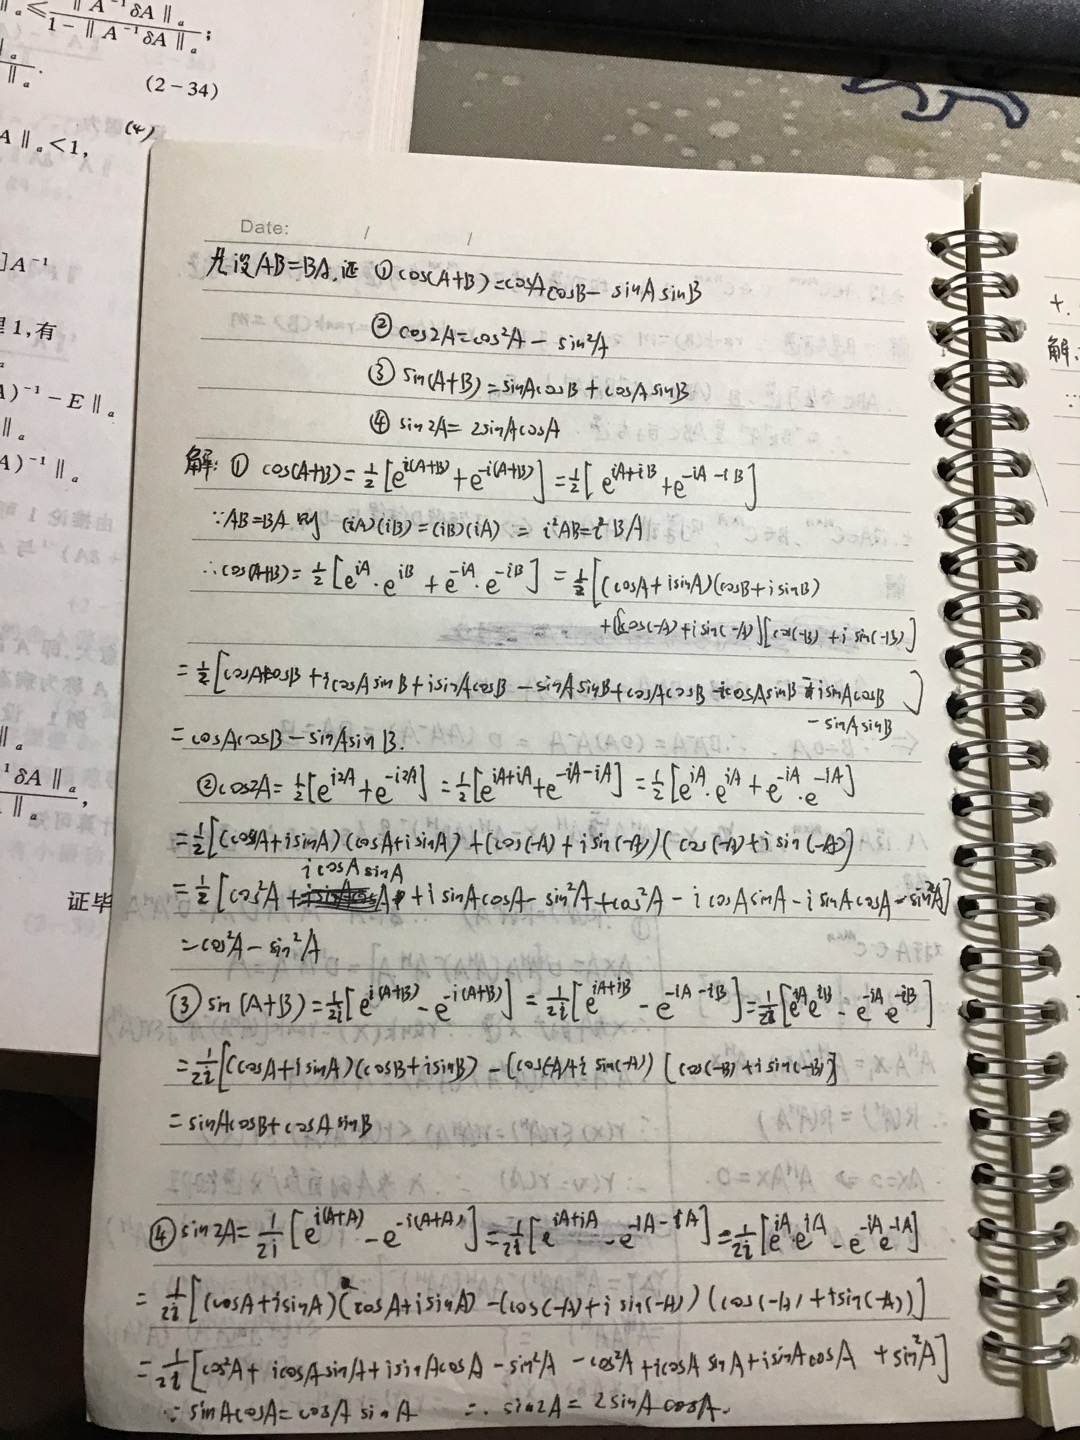 ‖ₐ ≤ ‖A⁻¹δA‖ₐ / (1-‖A⁻¹δA‖ₐ);
(2-34)
A‖ₐ<1,
(4)
]A⁻¹
1,有
A)⁻¹-E‖ₐ
A)⁻¹‖ₐ
⁻¹δA‖ₐ
证毕
Date: / /
九.设AB=BA,证 ① cos(A+B)=cosAcosB- sinA sinB
② cos2A=cos²A- sin²A
③ sin(A+B)=sinAcosB+cosAsinB
④ sin2A= 2sinAcosA
解: ① cos(A+B)=1/2[e^{i(A+B)}+e^{-i(A+B)}]=1/2[e^{iA+iB}+e^{-iA-iB}]
∵AB=BA.则 (iA)(iB)=(iB)(iA) = i²AB=i²BA
∴cos(A+B)=1/2[e^{iA}·e^{iB}+e^{-iA}·e^{-iB}]=1/2[(cosA+isinA)(cosB+isinB)
+[cos(-A)+isin(-A)][cos(-B)+isin(-B)]
=1/2[cosAcosB+icosAsinB+isinAcosB-sinAsinB+cosAcosB-icosAsinB-isinAcosB
-sinAsinB]
=cosAcosB-sinAsinB.
②cos2A=1/2[e^{i2A}+e^{-i2A}]=1/2[e^{iA+iA}+e^{-iA-iA}]=1/2[e^{iA}·e^{iA}+e^{-iA}·e^{-iA}]
=1/2[(cosA+isinA)(cosA+isinA)+(cos(-A)+isin(-A))(cos(-A)+isin(-A)]
=1/2[cos²A+icosAsinA+isinAcosA-sin²A+cos²A-icosAsinA-isinAcosA-sin²A]
=cos²A-sin²A
③ sin(A+B)=1/2i[e^{i(A+B)}-e^{-i(A+B)}]=1/2i[e^{iA+iB}-e^{-iA-iB}]=1/2i[e^{iA}e^{iB}-e^{-iA}e^{-iB}]
=1/2i[(cosA+isinA)(cosB+isinB)-(cos(-A)+isin(-A))[cos(-B)+isin(-B)]
=sinAcosB+cosAsinB
④ sin2A=1/2i[e^{i(A+A)}-e^{-i(A+A)}]=1/2i[e^{iA+iA}-e^{-iA-iA}]=1/2i[e^{iA}·e^{iA}-e^{-iA}e^{-iA}]
=1/2i[(cosA+isinA)(cosA+isinA)-(cos(-A)+isin(-A))(cos(-A)+isin(-A))]
=1/2i[cos²A+icosAsinA+isinAcosA-sin²A-cos²A+icosAsinA+isinAcosA+sin²A]
∵sinAcosA=cosAsinA ∴sin2A=2sinAcosA.
解